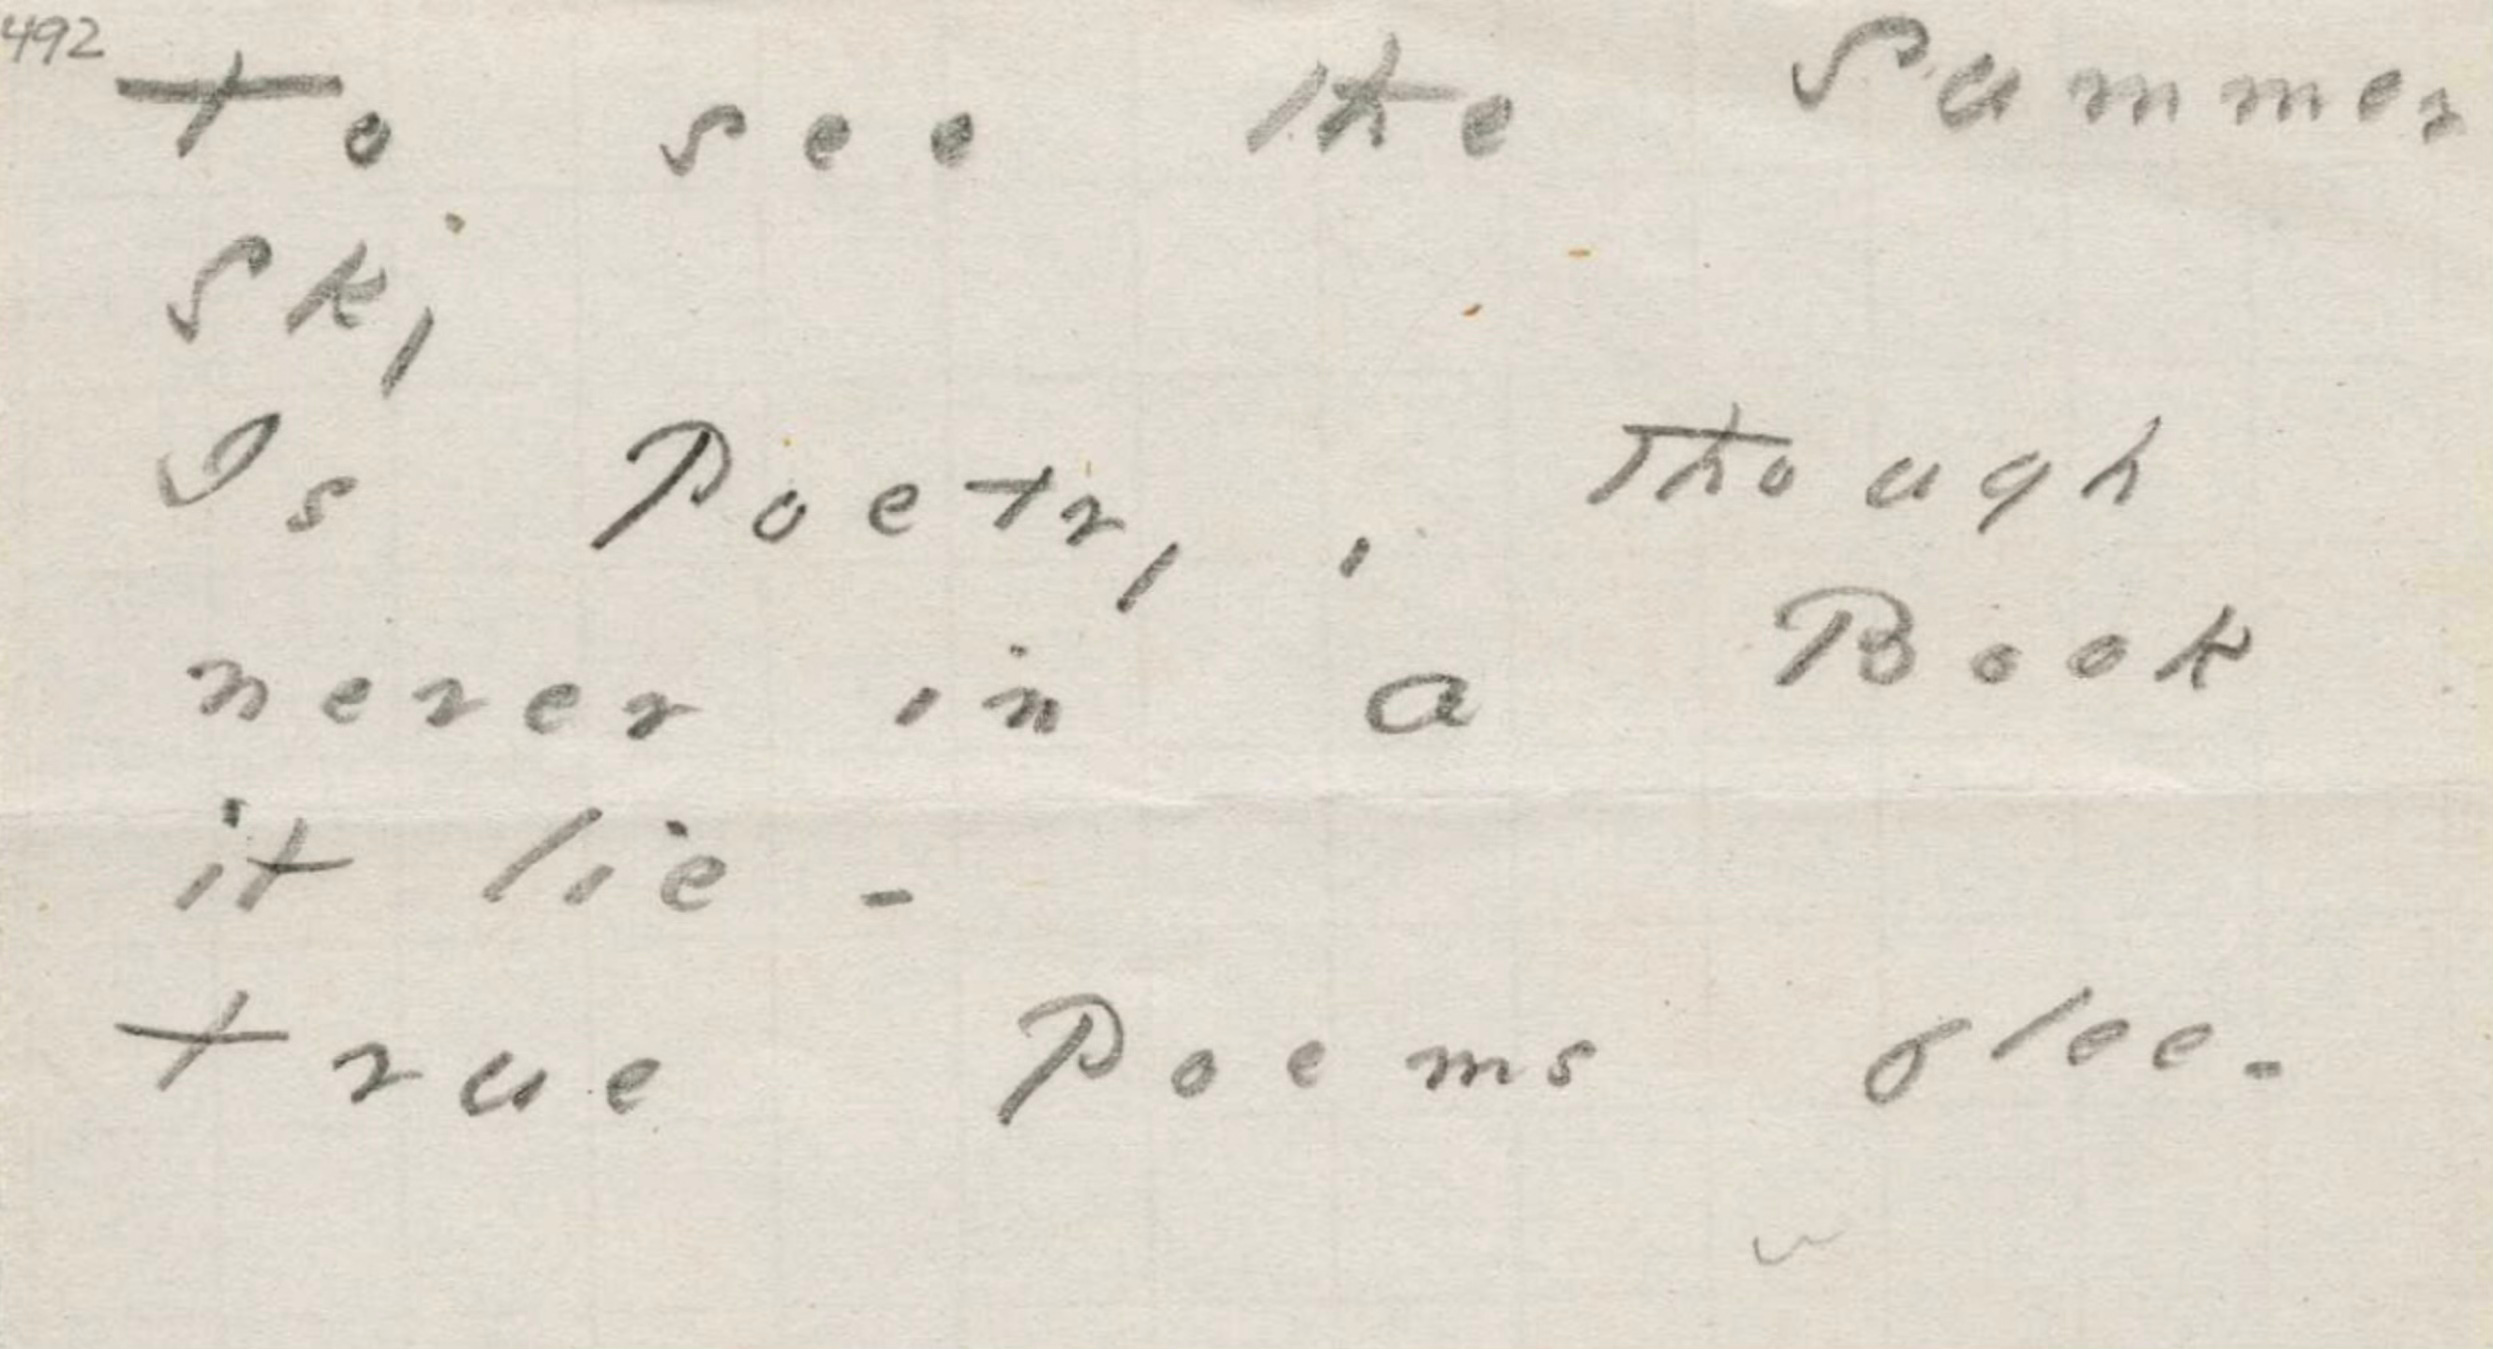 492
To see the Summer
Sky
Is Poetry, though
never in a Book
it lie -
True Poems flee -